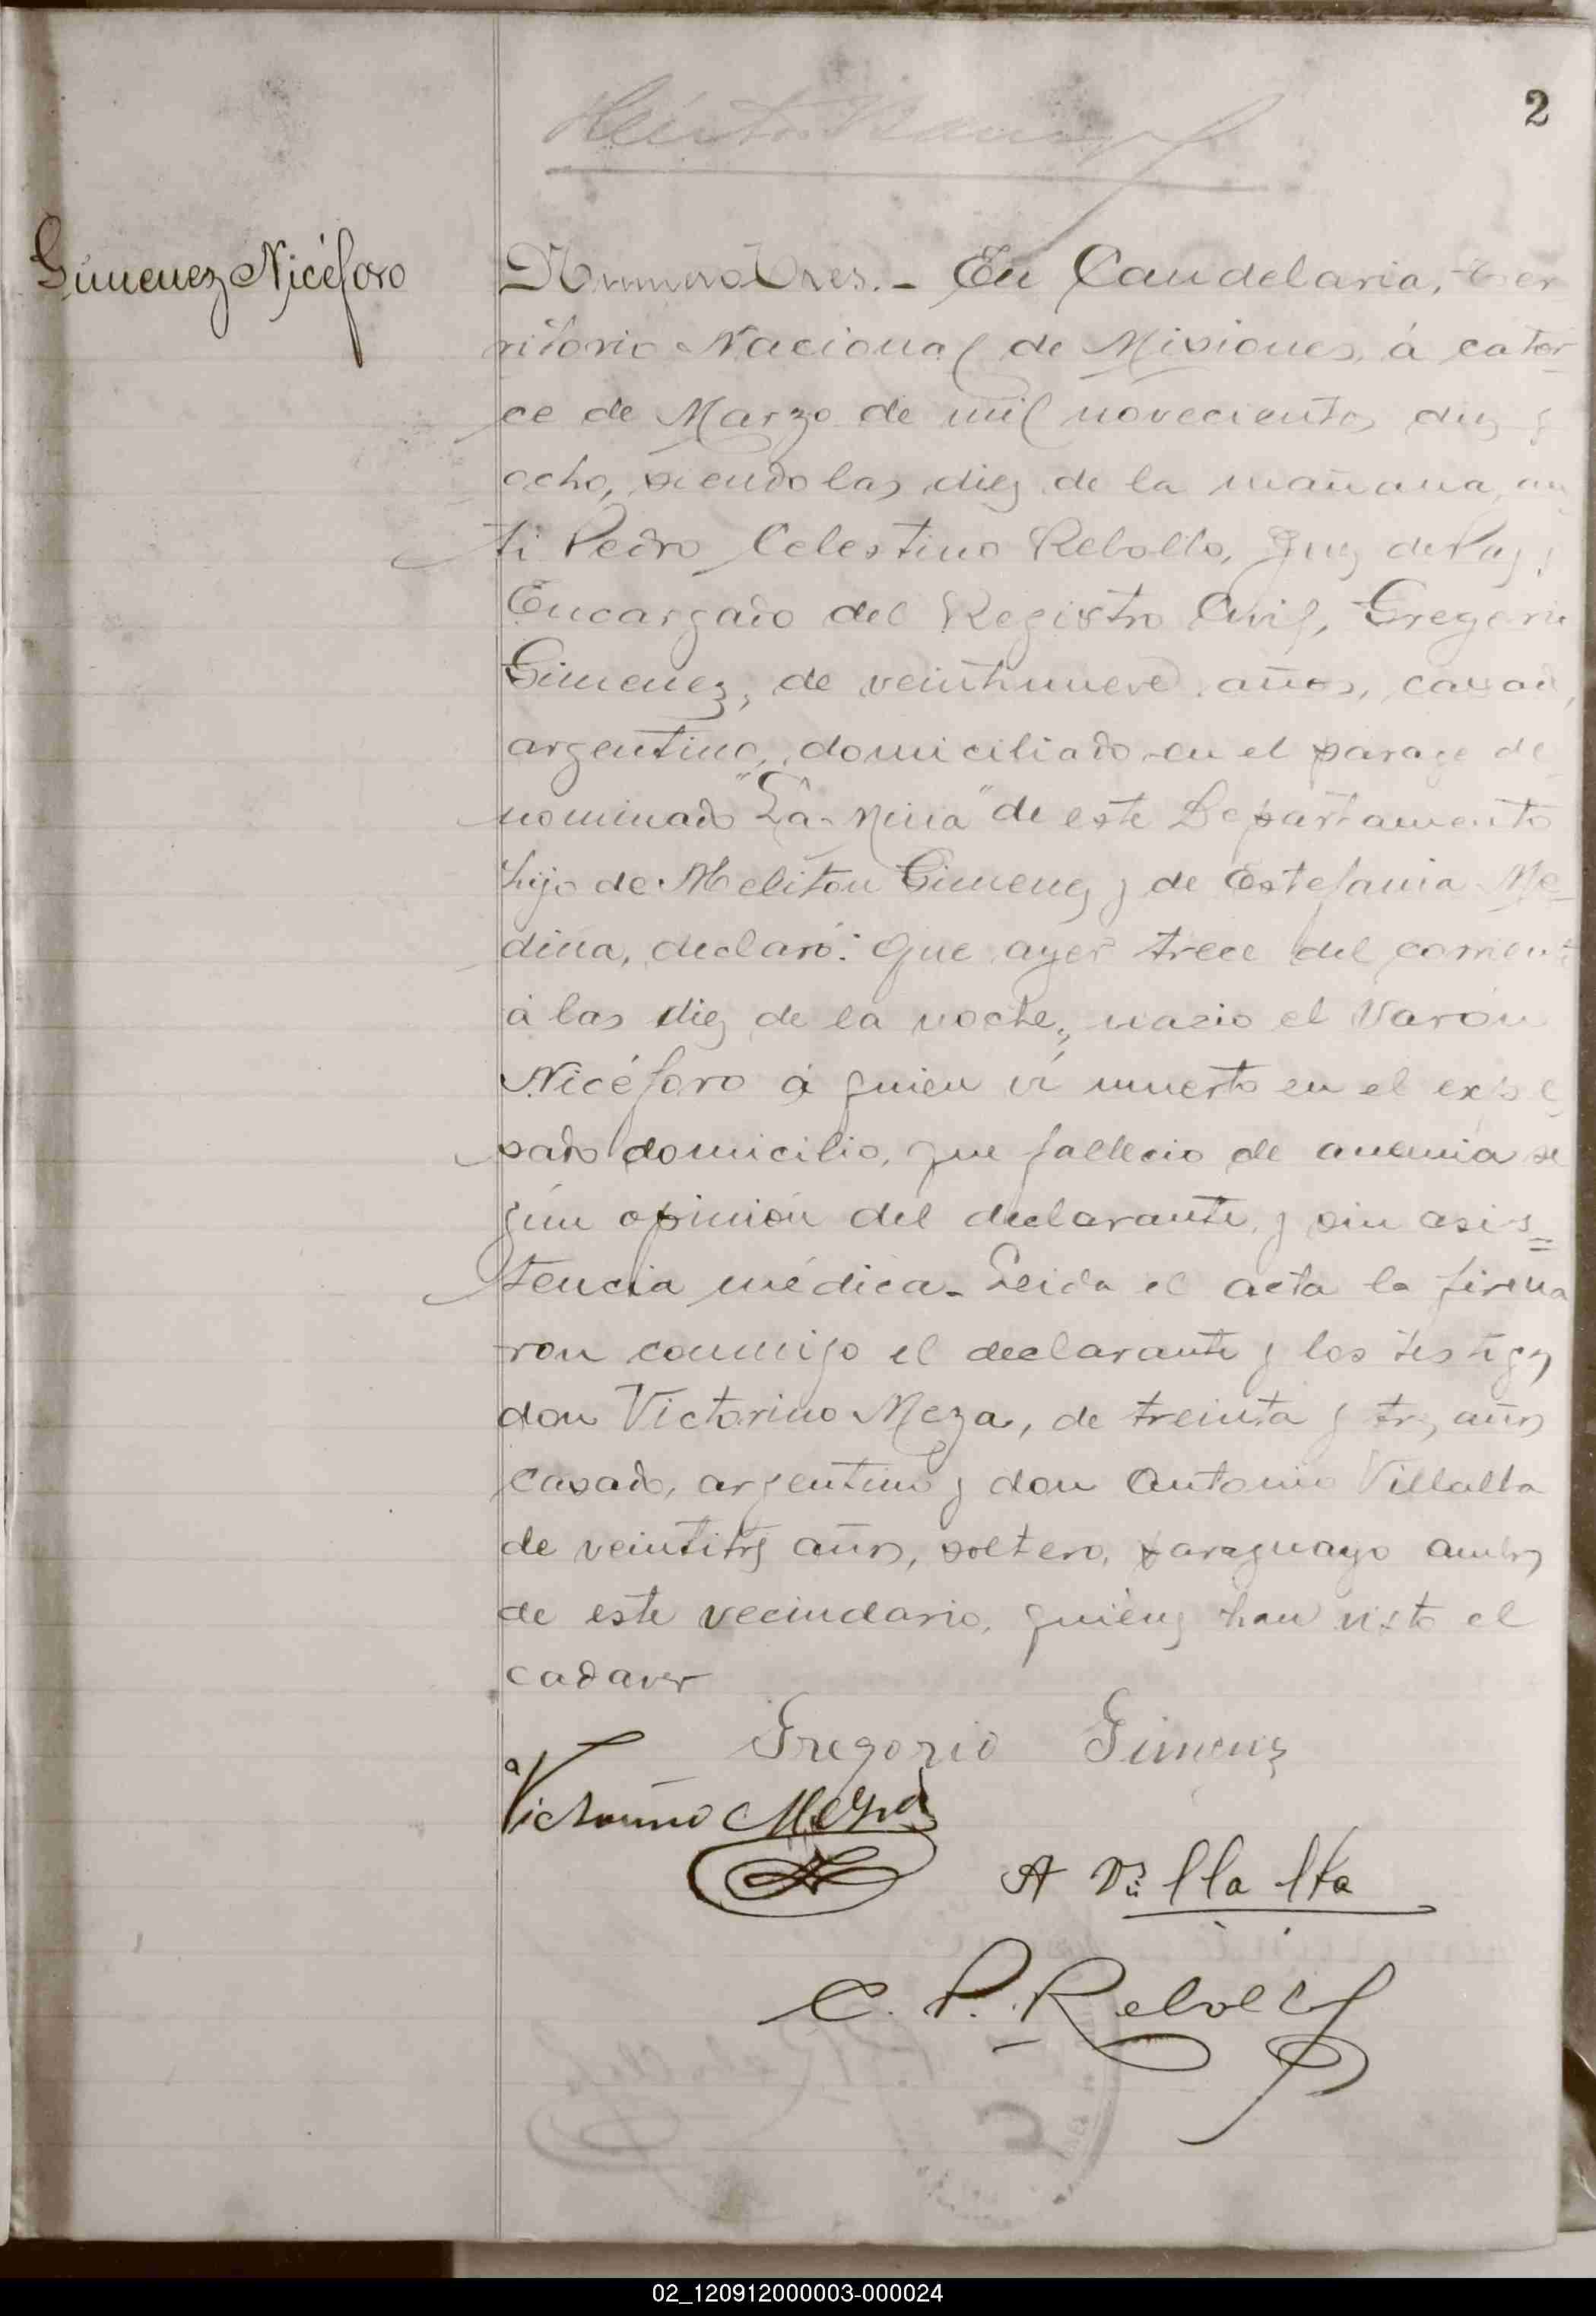 2
Gimenez Nicéforo
Numero Tres.- En Candelaria, Ter
ritorio Nacional de Misiones, á cator
ce de Marzo de mil novecientos diez y
ocho, siendo las diez de la mañana, an
te Pedro Celestino Rebollo, Juez de Paz y
Encargado del Registro Civil, Gregorio
Gimenez, de veintinueve años, casado,
argentino, domiciliado en el parage de
nominado "La Mina" de este Departamento
hijo de Meliton Gimenez y de Estefania Me
dina, declaró: Que ayer trece del corriente
á las diez de la noche, nazio el varón
Nicéforo á quien ví muerto en el expre
sado domicilio, que fallecio de anemia se
gún opinión del declarante, y sin asis=
tencia médica- Leida el acta la firma
ron conmigo el declarante y los testigos
don Victorino Meza, de treinta y tres años
casado, argentino y don Antonio Villalta
de veintitrés años, soltero, paraguayo ambos
de este vecindario, quiénes han visto el
cadaver
Gregorio Gimenez
Victorino Meza
A Villalta
C. P. Rebollo
02_120912000003-000024